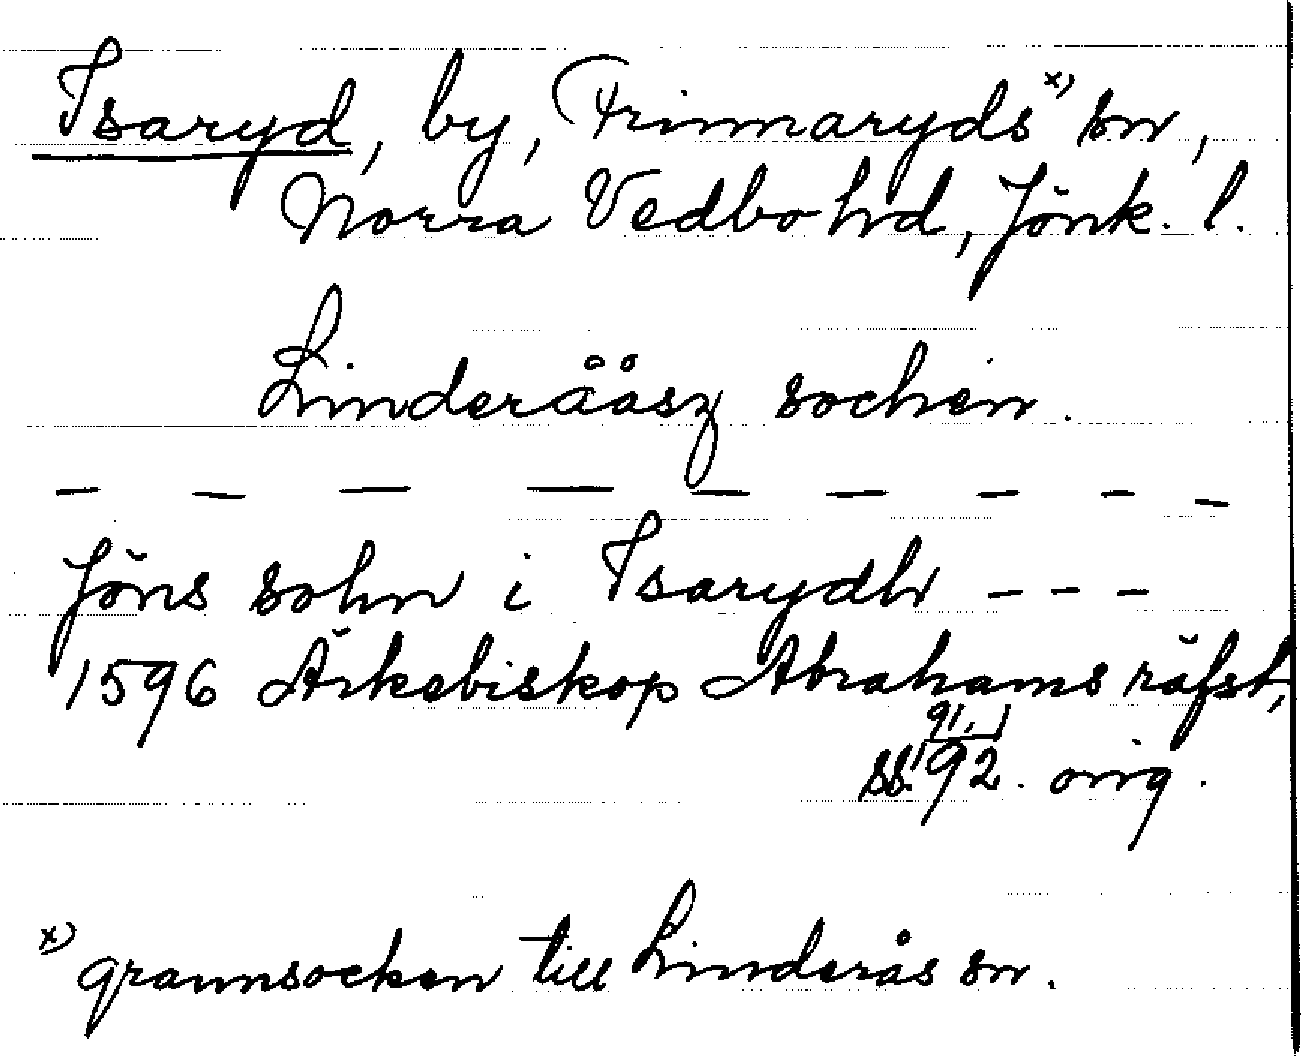 Isaryd, by, Frinnaryds x) sn,
Norra Vedbo hd, Jönk. l.
Linderååsz sochen.
— — — — — — — — —
Jöns sohn i Isarydh - - -
1596 Ärkebiskop Abrahams räfst,
ss. 91, 92. orig.
x) grannsocken till Linderås sn.